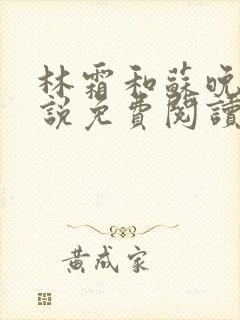 林霜和蘇晚
說免費閱讀
黃成家